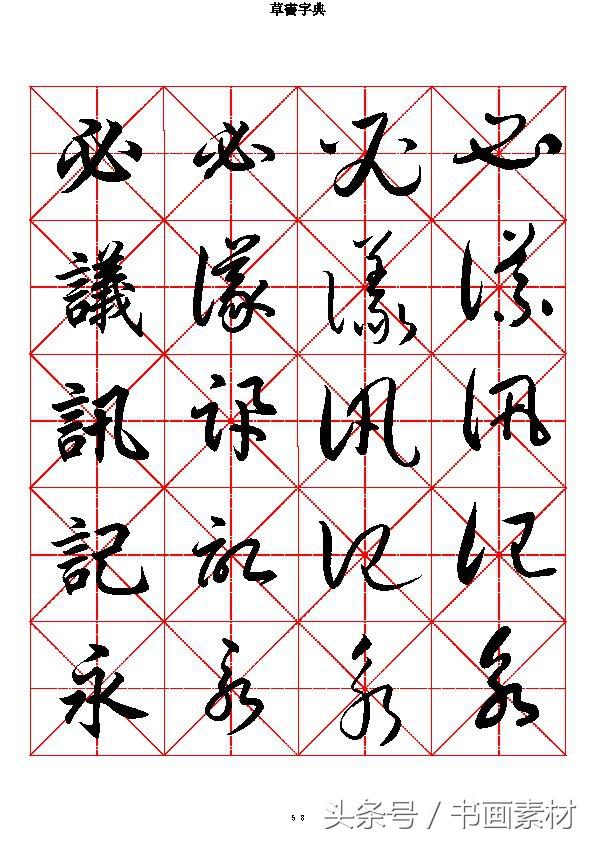 草書字典
必 必 必 必
議 議 議 議
訊 訊 訊 訊
記 記 記 記
永 永 永 永
58
头条号 / 书画素材